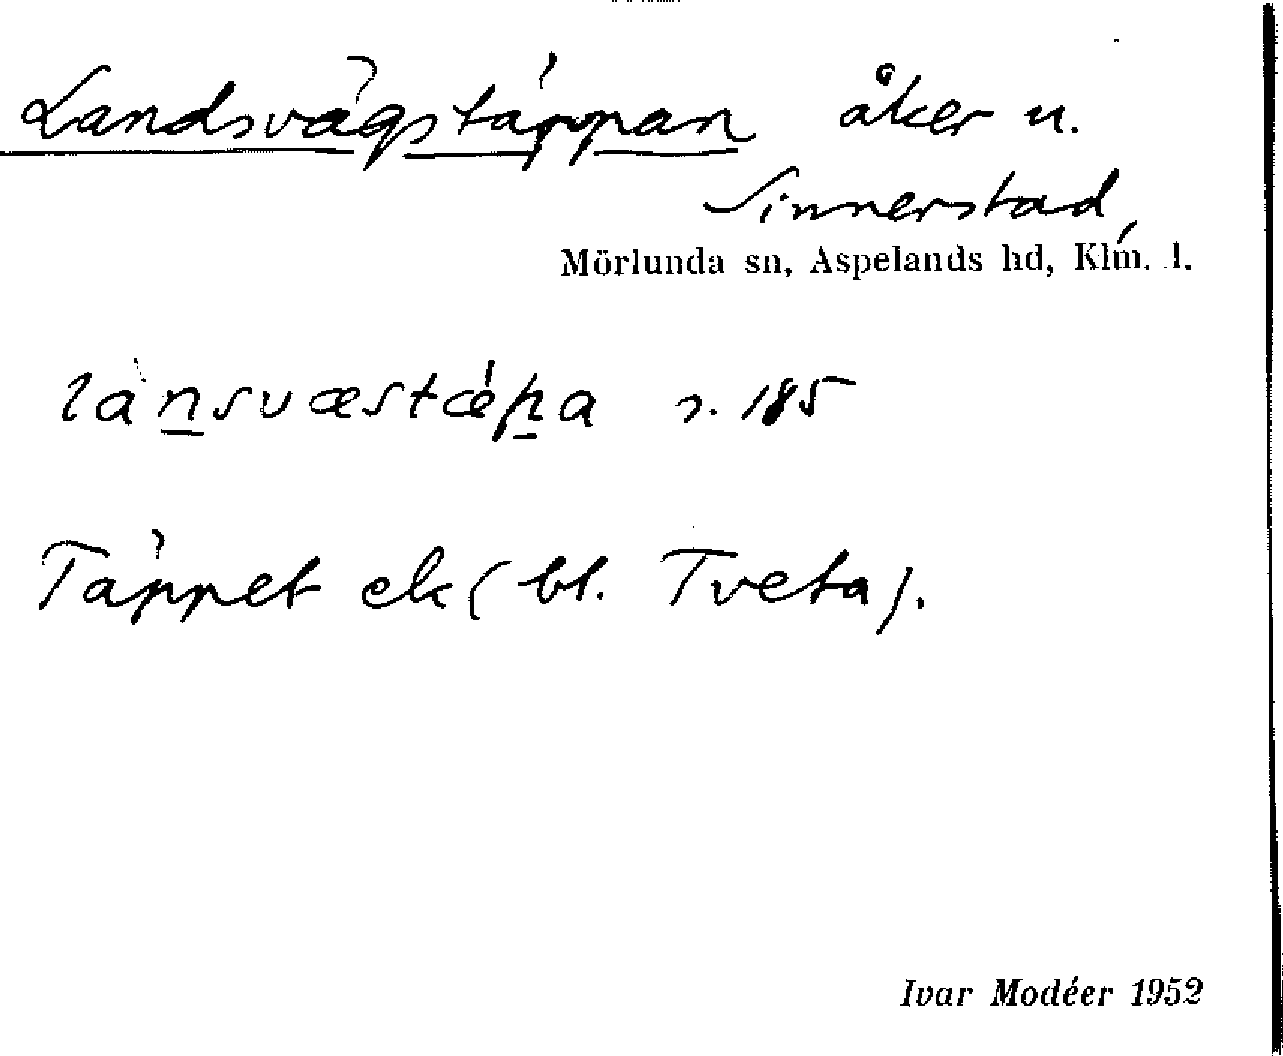 Landsvägstäppan åker u.
Sinnerstad,
Mörlunda sn, Aspelands hd, Klm. l.
lànsvæstǽpa s. 185
Täppet ek (bl. Tveta).
Ivar Modéer 1952